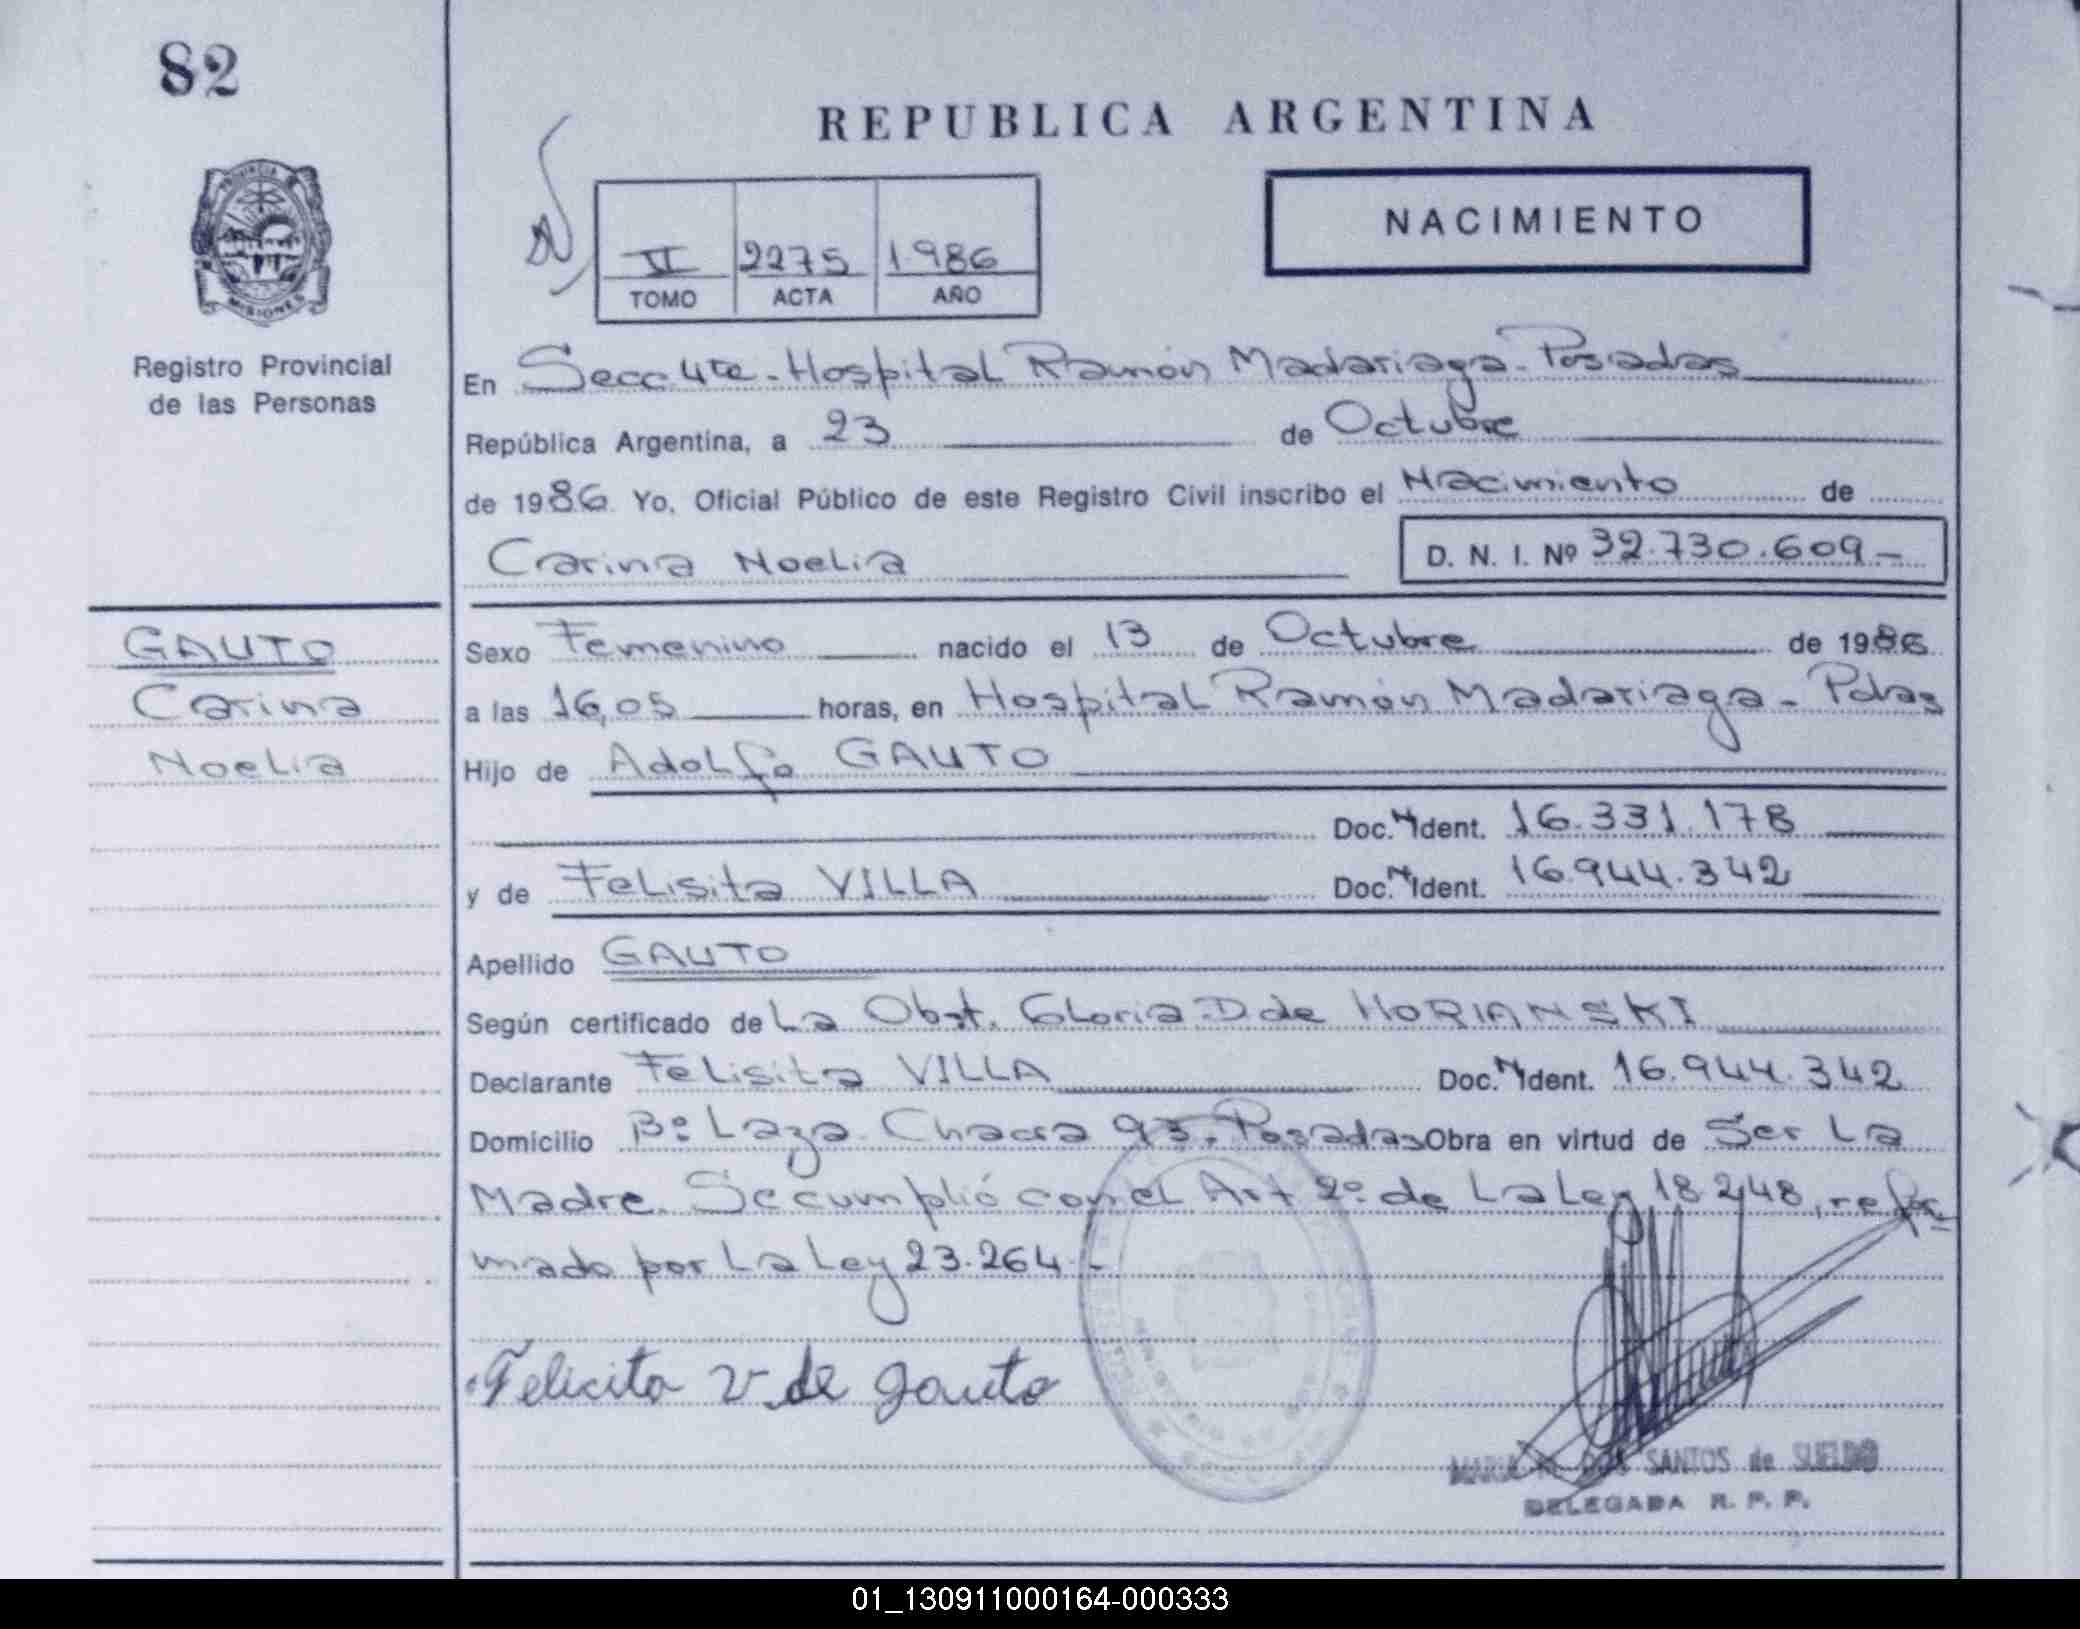 82
REPUBLICA ARGENTINA
PROVINCIA DE
MISIONES
Registro Provincial
de las Personas
VI 2275 1.986
TOMO ACTA AÑO
NACIMIENTO
En Secc 4ta. Hospital Ramón Madariaga - Posadas
República Argentina, a 23 de Octubre
de 1986. Yo, Oficial Público de este Registro Civil inscribo el Nacimiento de
Carina Noelia D. N. I. Nº 32.730.609.-
GAUTO
Carina
Noelia
Sexo Femenino nacido el 13 de Octubre de 1986
a las 16,05 horas, en Hospital Ramón Madariaga - Pdas
Hijo de Adolfo GAUTO
Doc. N Ident. 16.331.178
y de Felisita VILLA Doc. N Ident. 16.944.342
Apellido GAUTO
Según certificado de La Obst. Gloria D de HORIANSKI
Declarante Felisita VILLA Doc. N Ident. 16.944.342
Domicilio Bº Laza Chacra 93. Posadas Obra en virtud de Ser La
Madre. Se cumplió con el Art 2º de La Ley 18.248, refor
mado por La Ley 23.264.-
Felicita v de gauto
MARIA DOS SANTOS de SUELDO
DELEGADA R. P. P.
01_130911000164-000333